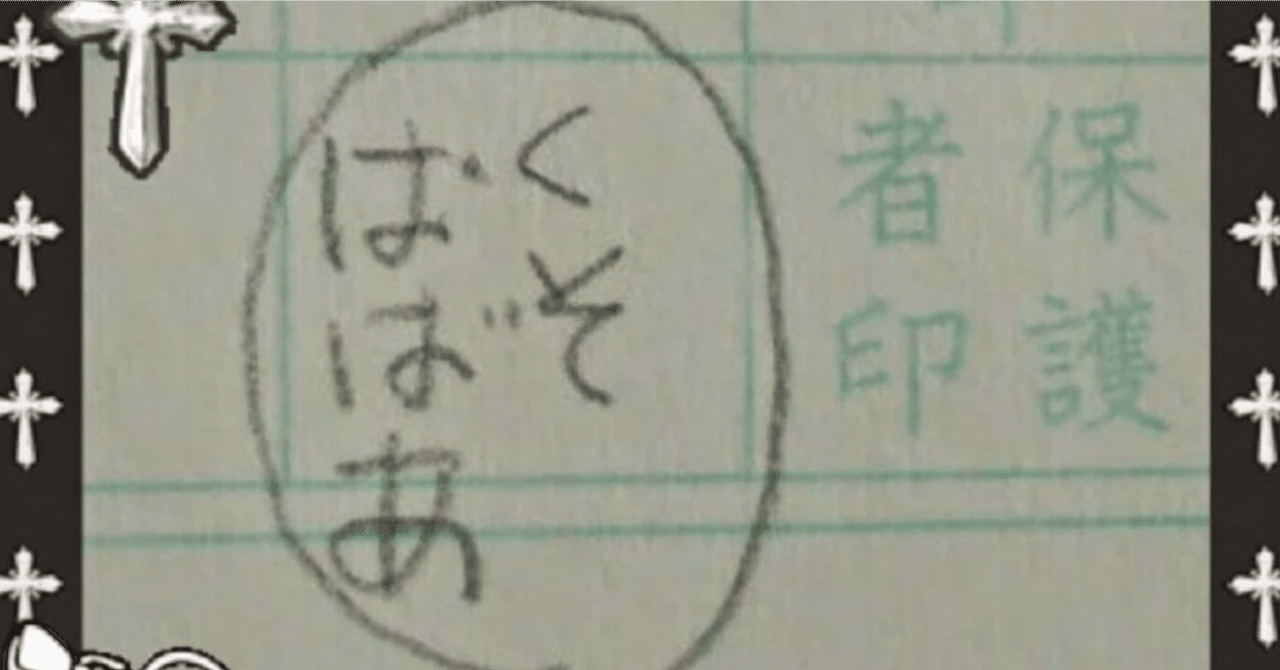 保護
者印
くそ
ばばあ